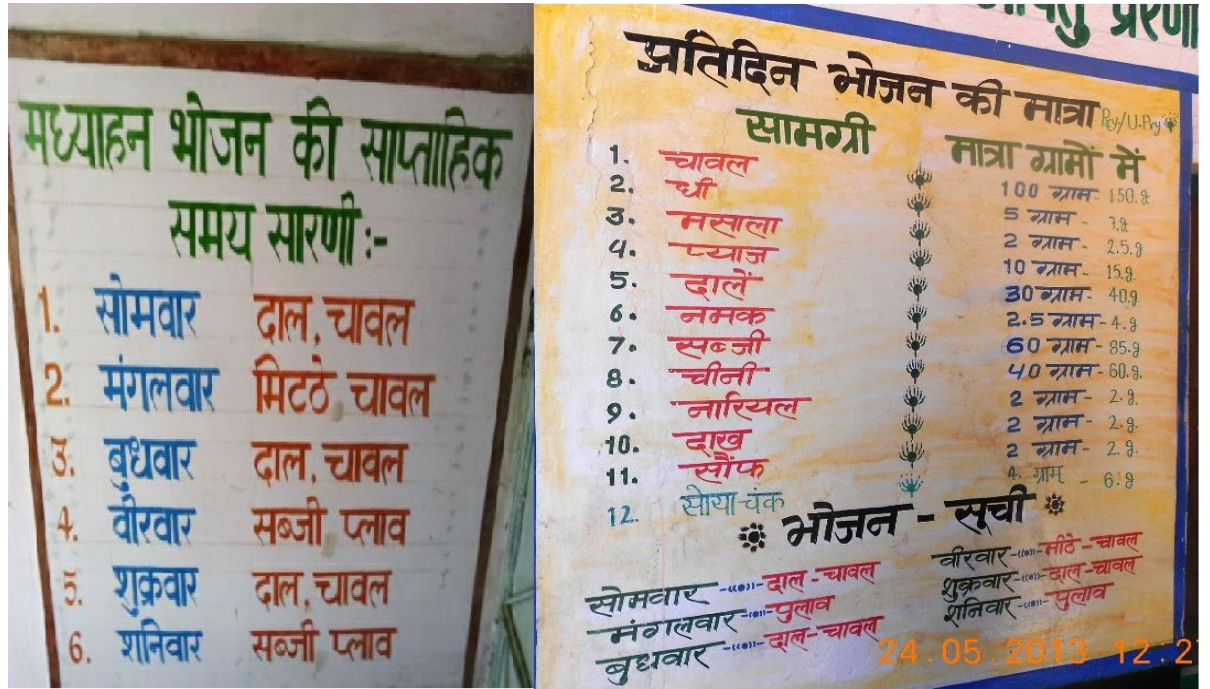 मध्याहन भोजन की साप्ताहिक
समय सारणी :-
1. सोमवार दाल, चावल
2. मंगलवार मिटठे चावल
3. बुधवार दाल, चावल
4. वीरवार सब्जी प्लाव
5. शुक्रवार दाल, चावल
6. शनिवार सब्जी प्लाव
प्रेरणा
प्रतिदिन भोजन की मात्रा Pry/U.Pry
सामग्री मात्रा ग्रामों में
1. चावल 100 ग्राम - 150.g
2. घी 5 ग्राम - 7.g
3. मसाला 2 ग्राम - 2.5.g
4. प्याज 10 ग्राम - 15.g
5. दालें 30 ग्राम - 40.g
6. नमक 2.5 ग्राम - 4.g
7. सब्जी 60 ग्राम - 85.g
8. चीनी 40 ग्राम - 60.g.
9. नारियल 2 ग्राम - 2.g.
10. दाख 2 ग्राम - 2.g.
11. सौंफ 2 ग्राम - 2.g.
12. सोया चंक 4. ग्राम् - 6.g
भोजन - सूची
सोमवार दाल - चावल
मंगलवार पुलाव
बुधवार दाल - चावल
वीरवार मीठे - चावल
शुक्रवार दाल - चावल
शनिवार पुलाव
24.05.2013 12:27